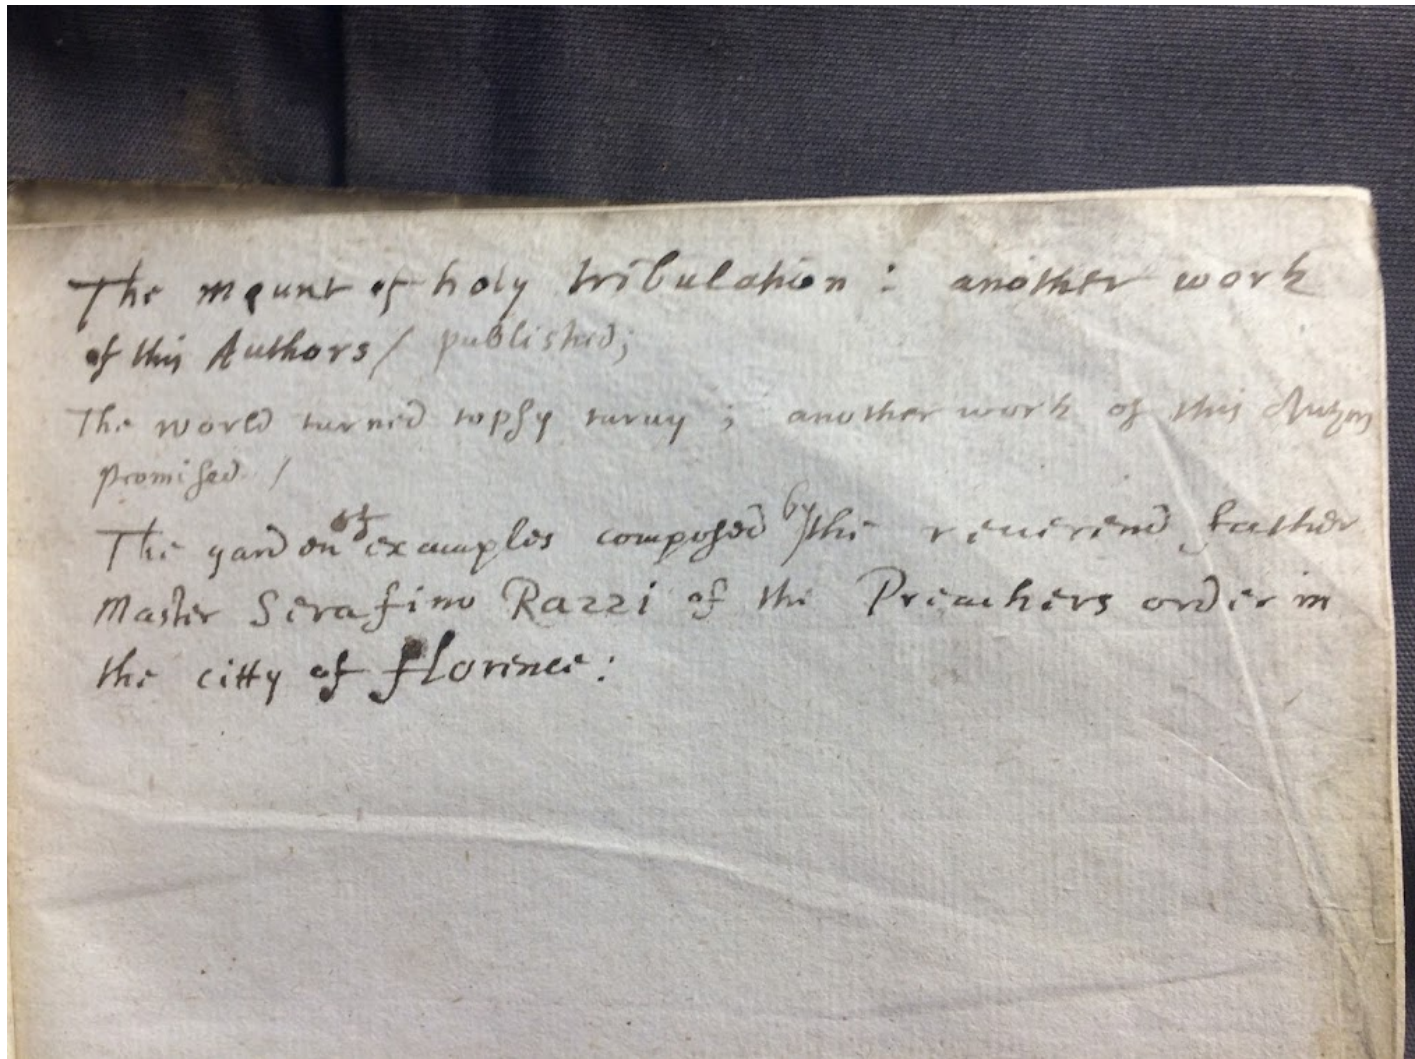 The mount of holy tribulation : another work
of this Authors / published;
The world turned topsy turuy ; another work of this Authors
promised /
The garden of examples composed by the reuerend father
Master Serafino Razzi of the Preachers order in
the citty of florence :